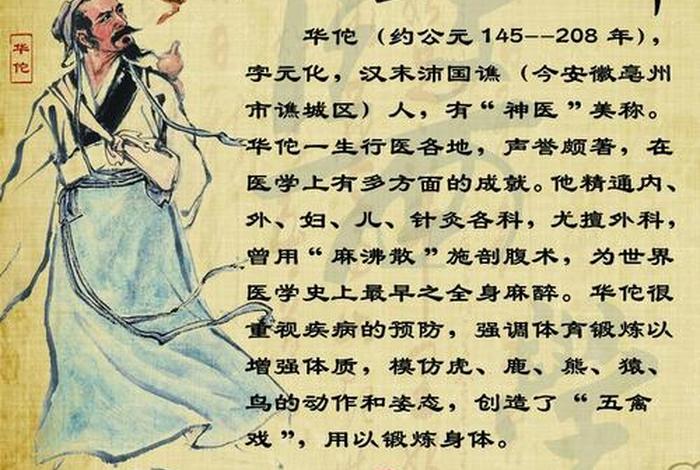 华佗
华佗（约公元145--208年），
字元化，汉末沛国谯（今安徽亳州
市谯城区）人，有“神医”美称。
华佗一生行医各地，声誉颇著，在
医学上有多方面的成就。他精通内、
外、妇、儿、针灸各科，尤擅外科，
曾用“麻沸散”施剖腹术，为世界
医学史上最早之全身麻醉。华佗很
重视疾病的预防，强调体育锻炼以
增强体质，模仿虎、鹿、熊、猿、
鸟的动作和姿态，创造了“五禽
戏”，用以锻炼身体。